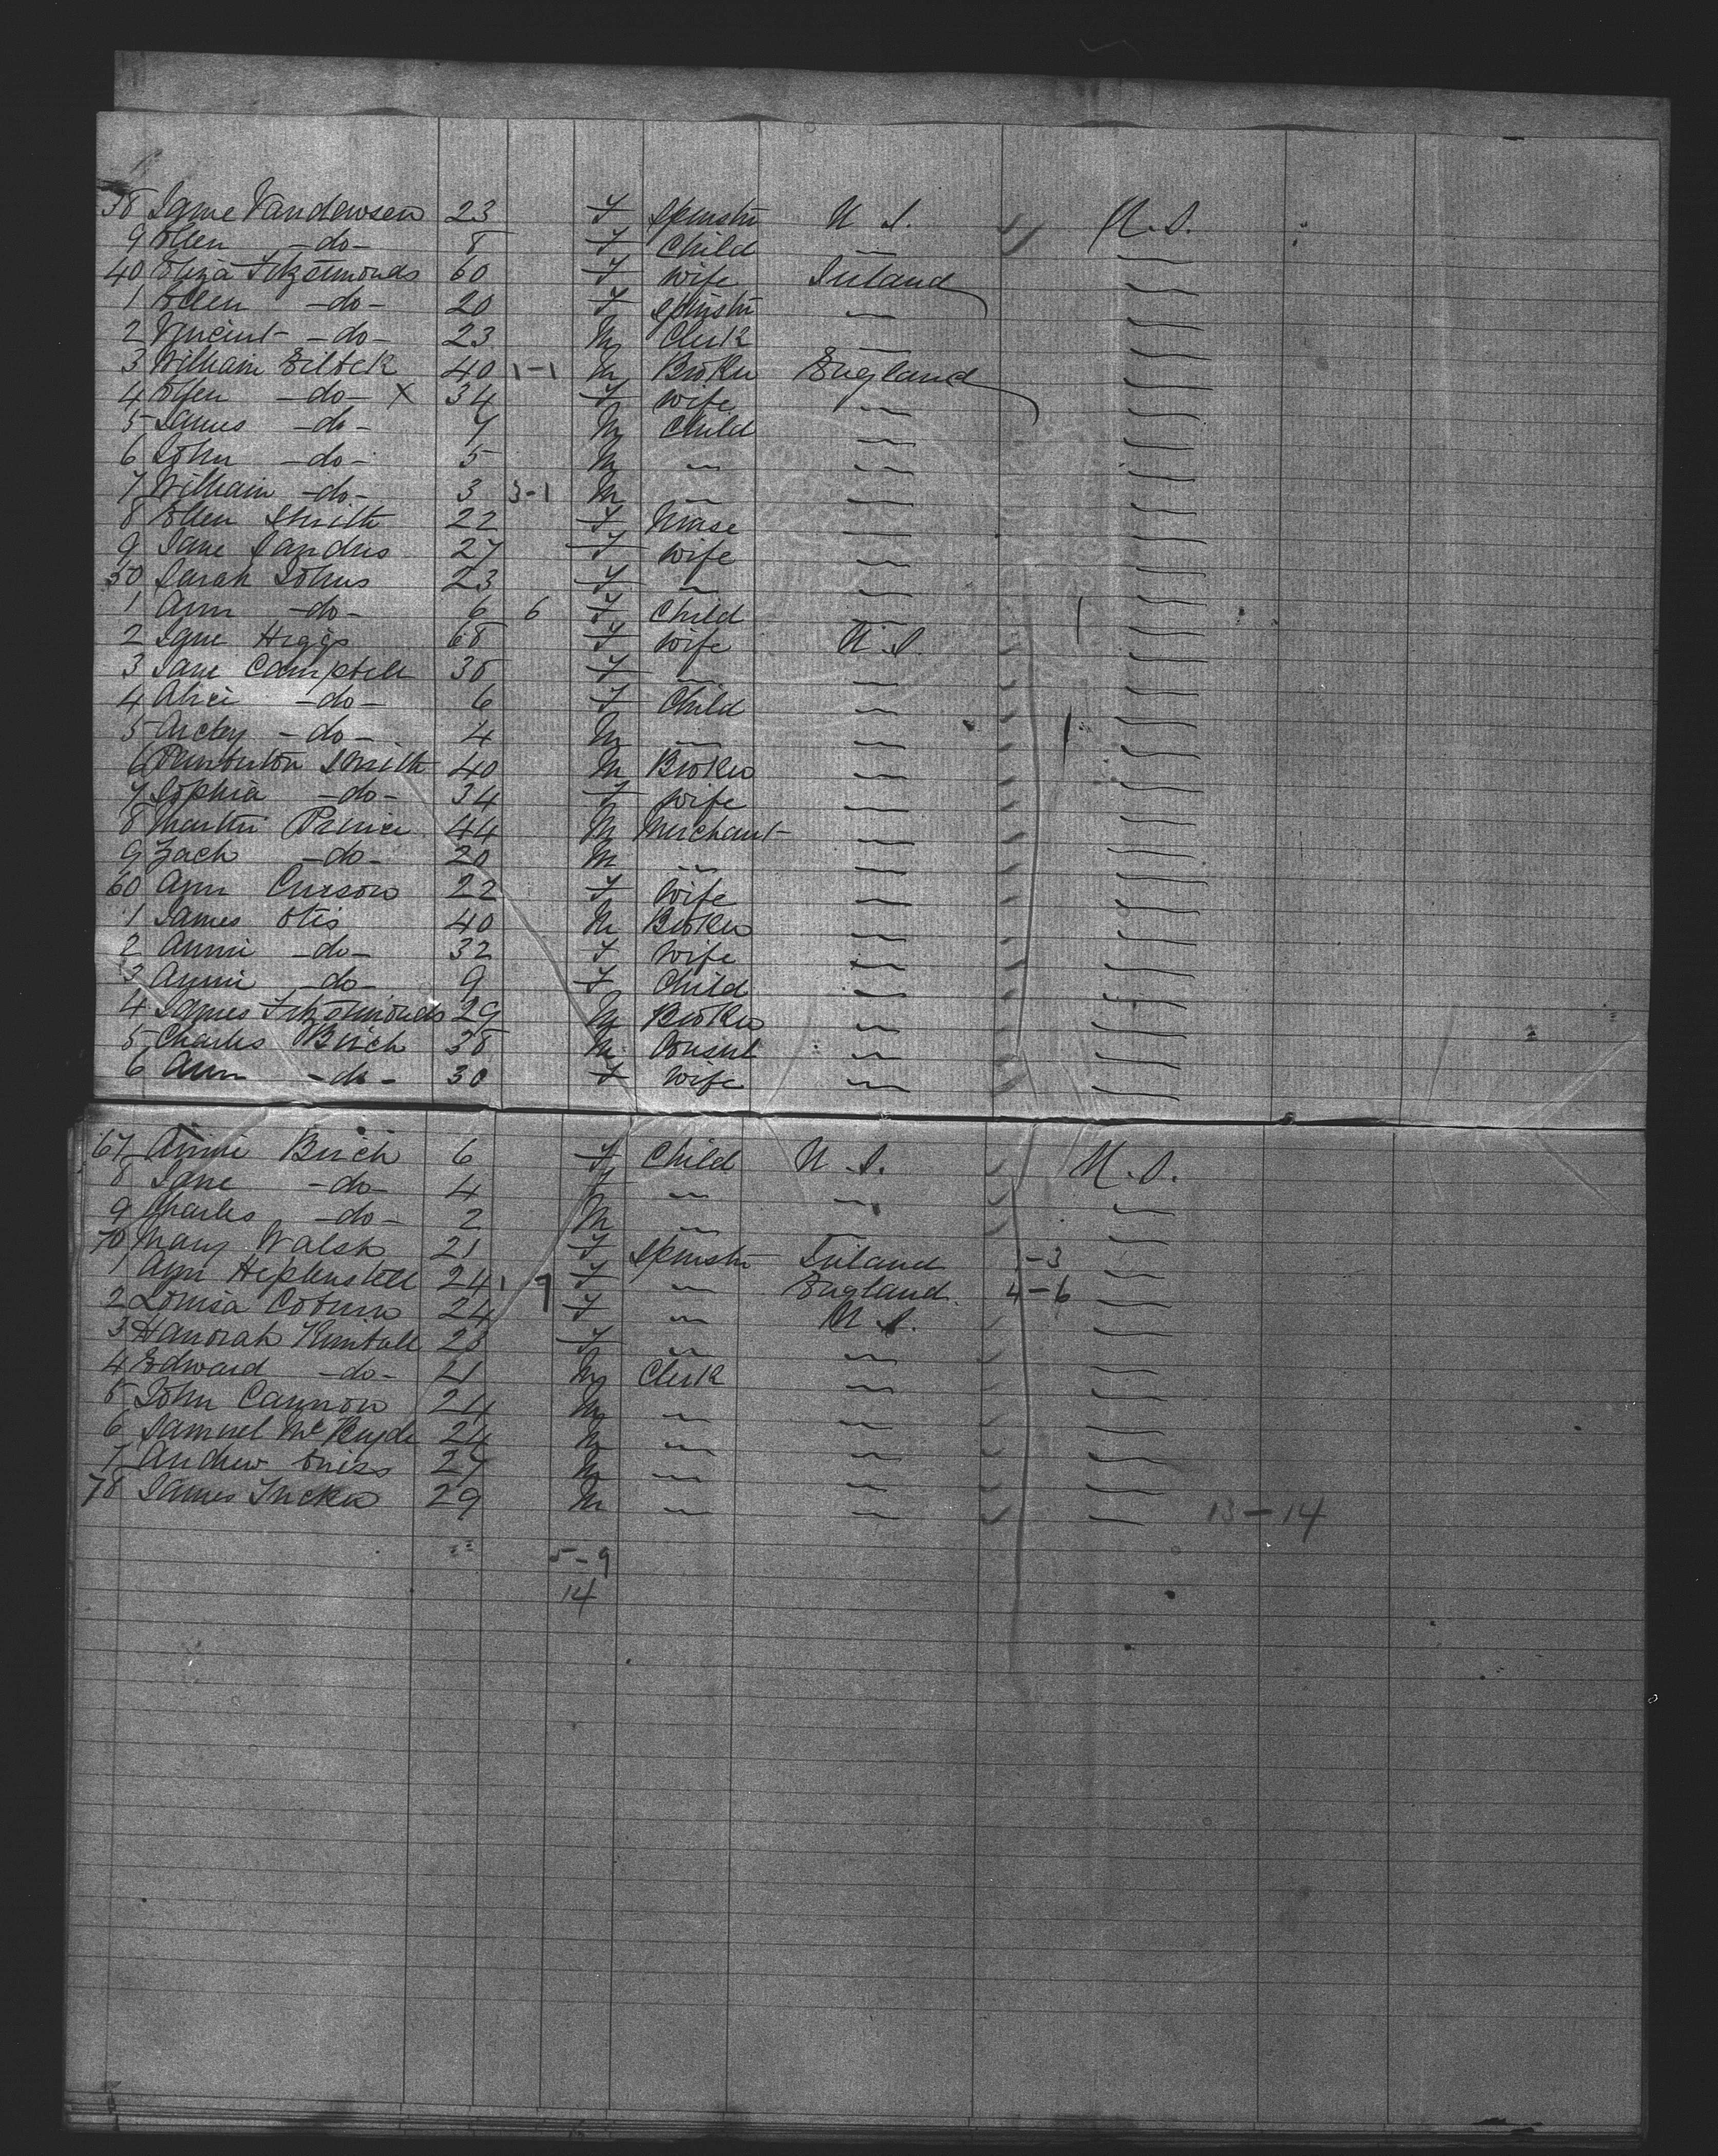 38 Jane Vandewsen 23 F Spinster U.S. U.S.
9 Ellen -do- 8 F Child
40 Eliza Fitzsimonds 60 F Wife Ireland
1 Ellen -do- 20 F Spinstr
2 Vincent -do- 23 M Clerk
3 William Silbek 40 1-1 M Broker England
4 Ellen -do- X 34 F Wife
5 James -do- 7 M Child
6 John -do- 5 M
7 William -do- 3 3-1 M
8 Ellen Smith 22 F Nurse
9 Jane Landris 27 F Wife
50 Sarah Johns 23 F
1 Ann -do- 6 6 F Child
2 Jane Higgs 68 F Wife U.S.
3 Jane Campbell 38 F
4 Alice -do- 6 F Child
5 Archy -do- 4 M
6 Pemberton Smith 40 M Broker
7 Sophia -do- 34 F Wife
8 Martin Prince 44 M Merchant
9 Zach -do- 20 M
60 Ann Curson 22 F Wife
1 James Otis 40 M Broker
2 Annie -do- 32 F Wife
3 Annie -do- 9 F Child
4 James Fitzsimonds 29 M Broker
5 Charles Birch 38 M Consul
6 Ann -do- 30 F Wife
67 Annie Birch 6 F Child U.S. U.S.
8 Jane -do- 4 F
9 Charles -do- 2 M
70 Mary Walsh 21 F Spinstr Ireland 1-3
1 Ann Heplenstell 24 1 9 F England 4-6
2 Louisa Coburn 24 F U.S.
3 Hanorah Kimball 28 F
4 Edward -do- 21 M Clerk
5 John Cannon 24 M
6 Samuel McBryde 24 M
7 Andrew 27 M
78 James Tucker 29 M 13-14
5-9
14